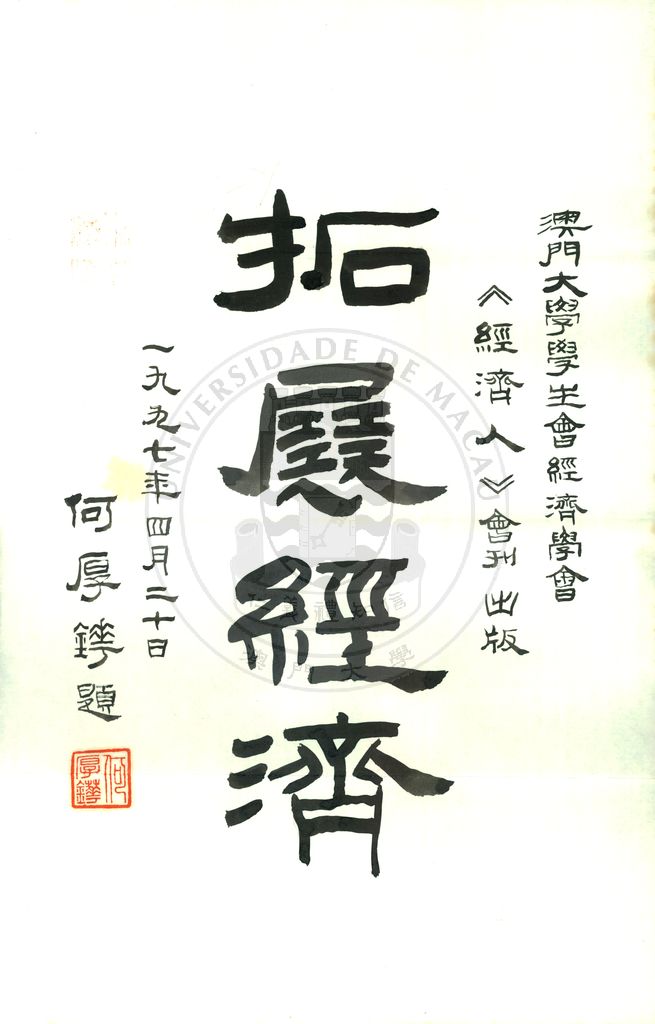 澳門大學學生會經濟學會
《經濟人》會刊出版
拓展經濟
一九九七年四月二十日
何厚鏵題
何厚鏵
UNIVERSIDADE DE MACAU
澳門大學